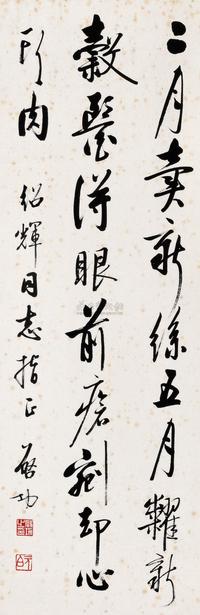 二月卖新丝五月糶新
穀医得眼前瘡剜却心
头肉 绍輝同志指正 启功